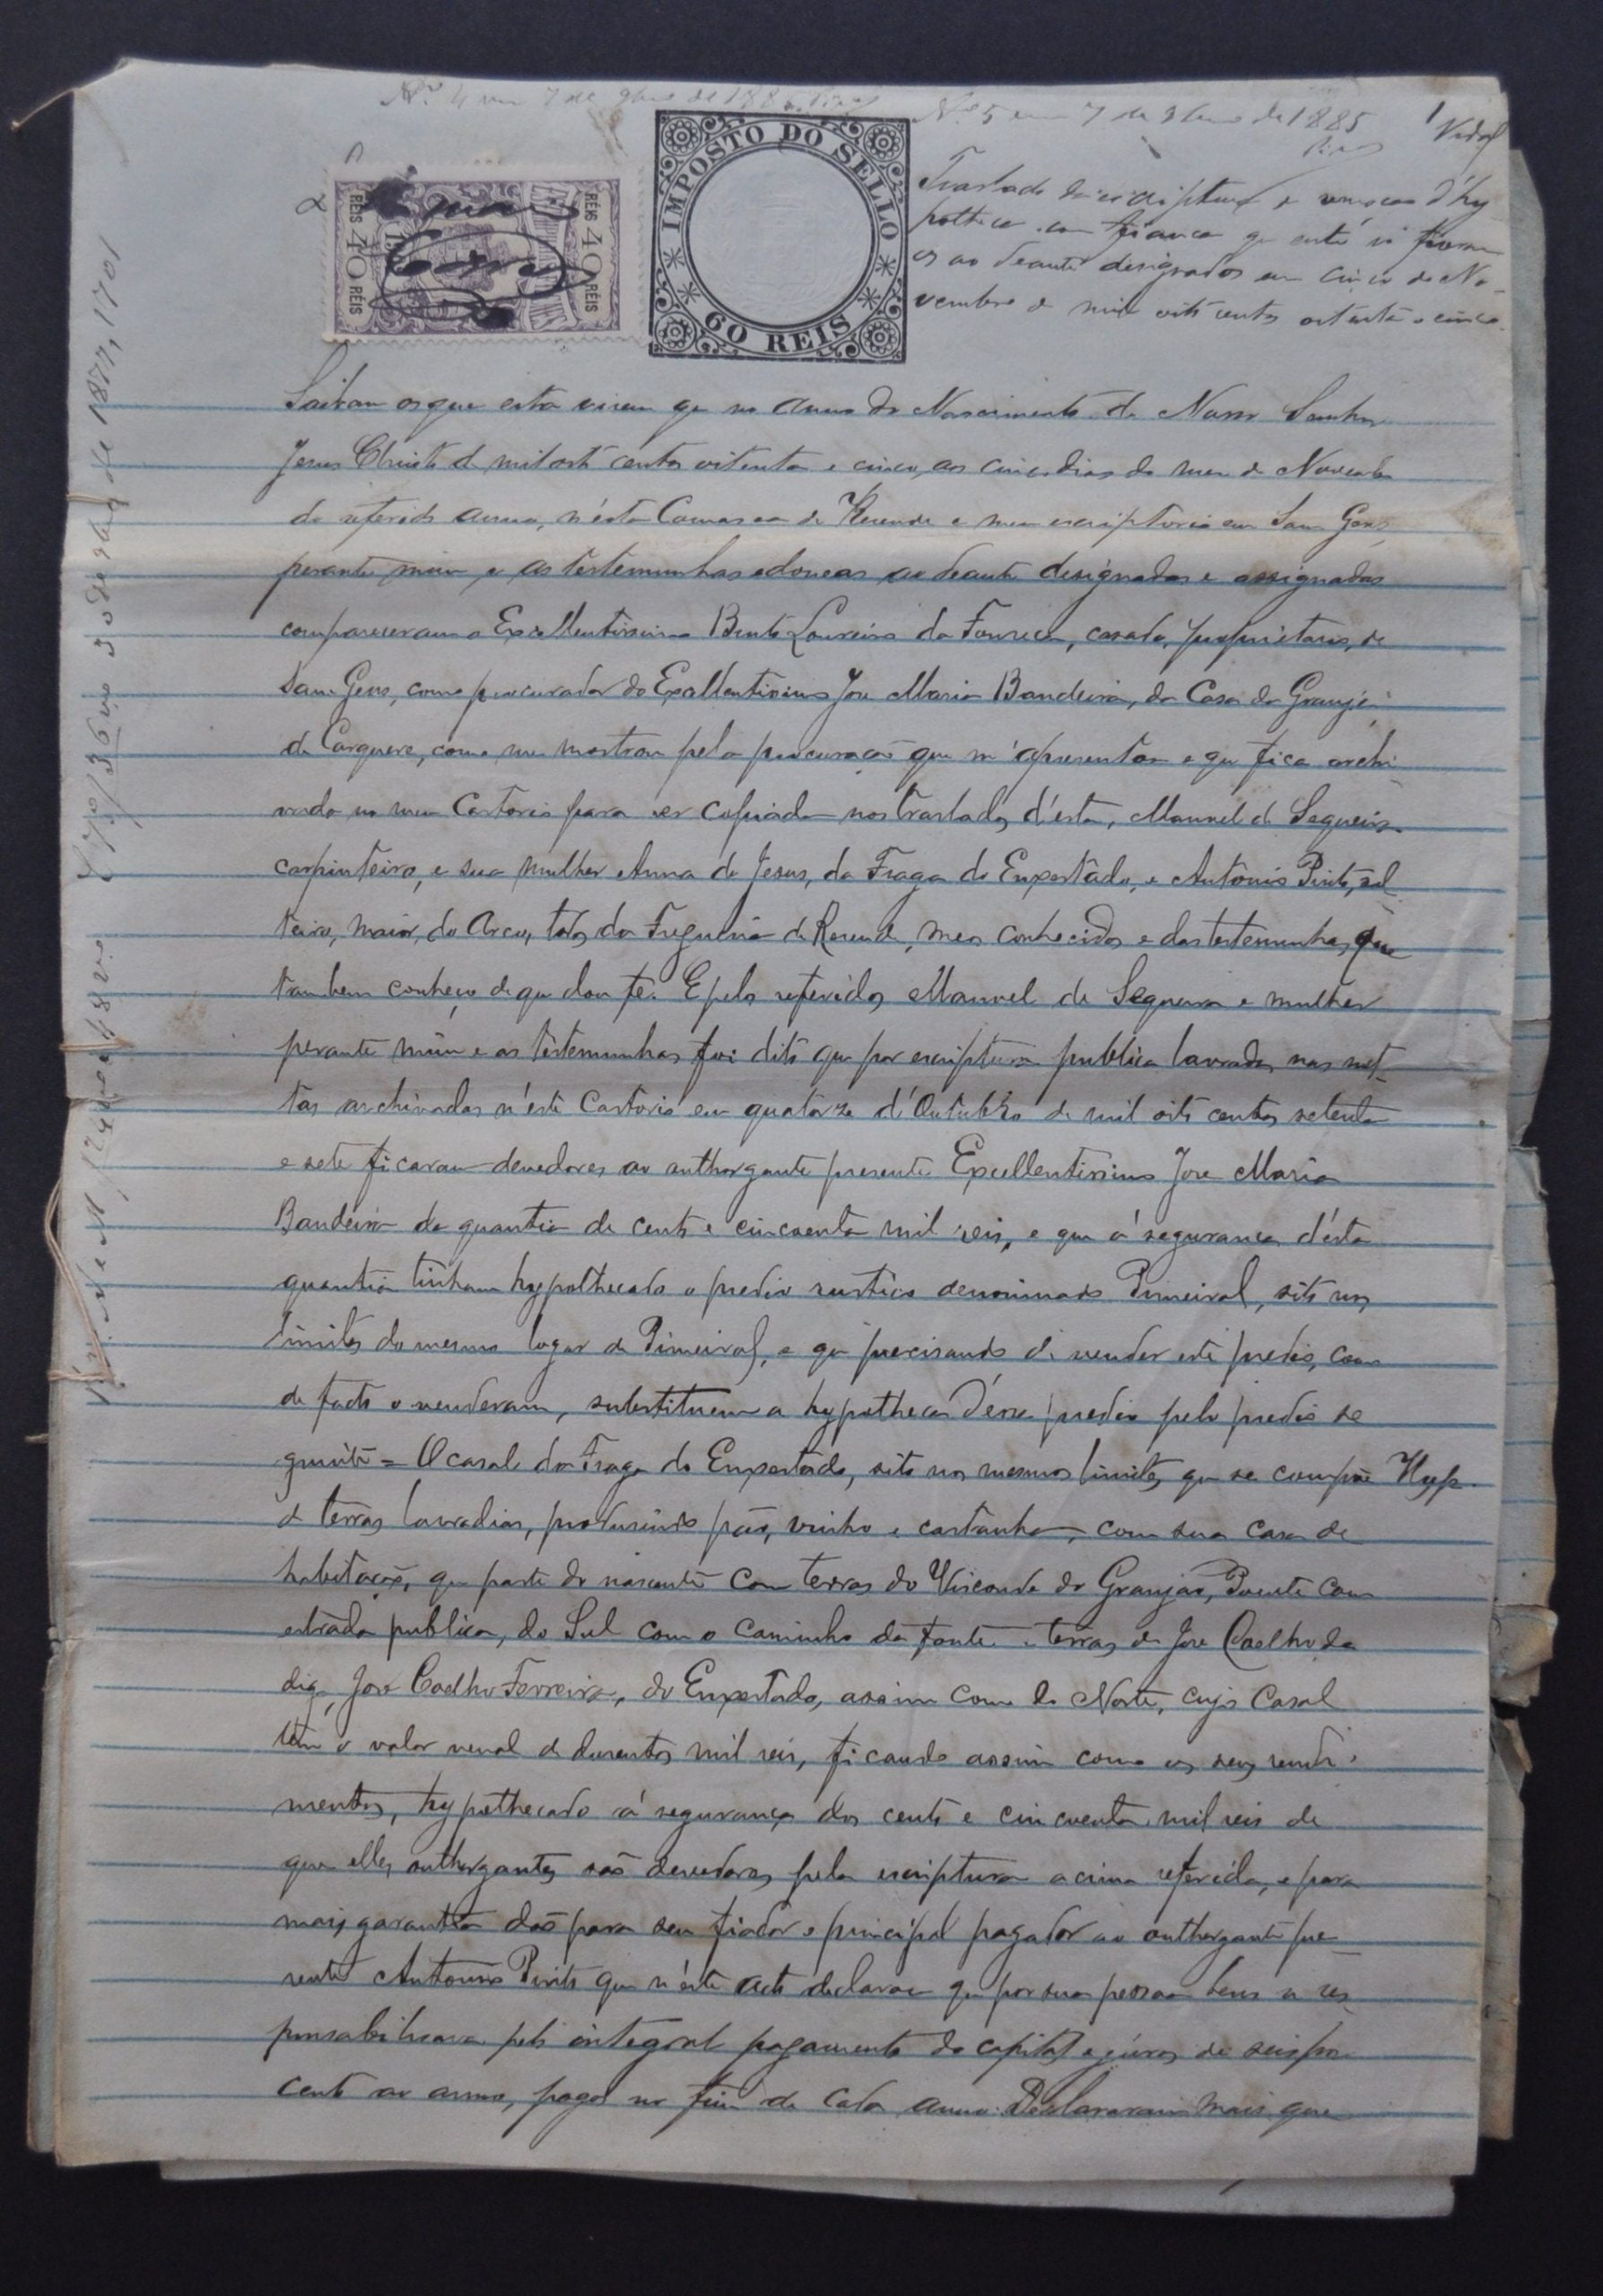 Nº 5 em 7 de 9bro de 1885
1
Vidal
IMPOSTO DO SELLO
60 REIS
REIS 40 REIS
REIS 40 REIS
Traslado de escriptura e remoção d'hy
potheca com fiança que entre si fizeram
os ao deante designados em cinco de No-
vembro de mil oito centos oitenta e cinco.
Saibam os que esta virem que no anno do Nascimento de Nosso Senhor
Jesus Christo de mil oito centos oitenta e cinco, aos cinco dias do mez de Novembro
do referido anno, n'esta Comarca de Rezende e meu escriptorio em Sam Gens,
perante mim e as testemunhas edoneas ao deante designadas e assignadas
compareceram o Excellentissimo Bento Loureiro da Fonseca, casado, proprietario, de
Sam Gens, como procurador do Excellentissimo Jose Maria Bandeira, da Casa da Granja
de Carquere, como me mostrou pela procuração que m'apresentou e que fica archi-
vada no meu Cartorio para ser copiada nos traslados d'esta, Manuel de Sequeira
carpinteiro, e sua mulher Anna de Jesus, da Fraga do Enxertado, e Antonio Pinto, sol-
teiro, maior, do Arco, todos da Freguesia de Resende, meus conhecidos e das testemunhas, que
tambem conheço de que dou fé. E pelos referidos Manuel de Sequeira e mulher
perante mim e as testemunhas foi dito que por escriptura publica lavrada nas not-
tas archivadas n'este Cartorio em quatorze d'Outubro de mil oito centos setenta
e sete ficaram devedores ao outhorgante presente Excellentissimo Jose Maria
Bandeira da quantia de cento e cincoenta mil reis, e que á segurança d'esta
quantia tinham hypothecado o predio rustico denominado Pimeiral, sito nos
limites do mesmo logar de Pimeiral, e que precisando de vender este predio, como
de facto o venderam, substituem a hypotheca d'esse predio pelo predio se
guinte = O casal da Fraga do Enxertado, sito nos mesmos limites, que se compõe Hyp.
de terras lavradias, produsindo pão, vinho e castanha, com sua casa de
habitação, que parte do nascente com terras do Visconde do Granjão, Poente com
estrada publica, do Sul com o caminho da fonte e terras de Jose Coelho da
digo, Jose Coelho Ferreira, do Enxertado, assim como do Norte, cujo Casal
tem o valor venal de dusentos mil reis, ficando assim como os seus rendi-
mentos, hypothecado á segurança dos cento e cincoenta mil reis de
que elles outhorgantes são devedores pela escriptura acima referida, e para
mais garantia dão para seu fiador e principal pagador ao outhorgante pre-
sente Antonio Pinto que n'este acto declarou que por sua pessoa e bens se res-
ponsabilisava pelo integral pagamento do capital e juros de seis por
cento ao anno, pagos no fim de cada anno. Declararam mais que